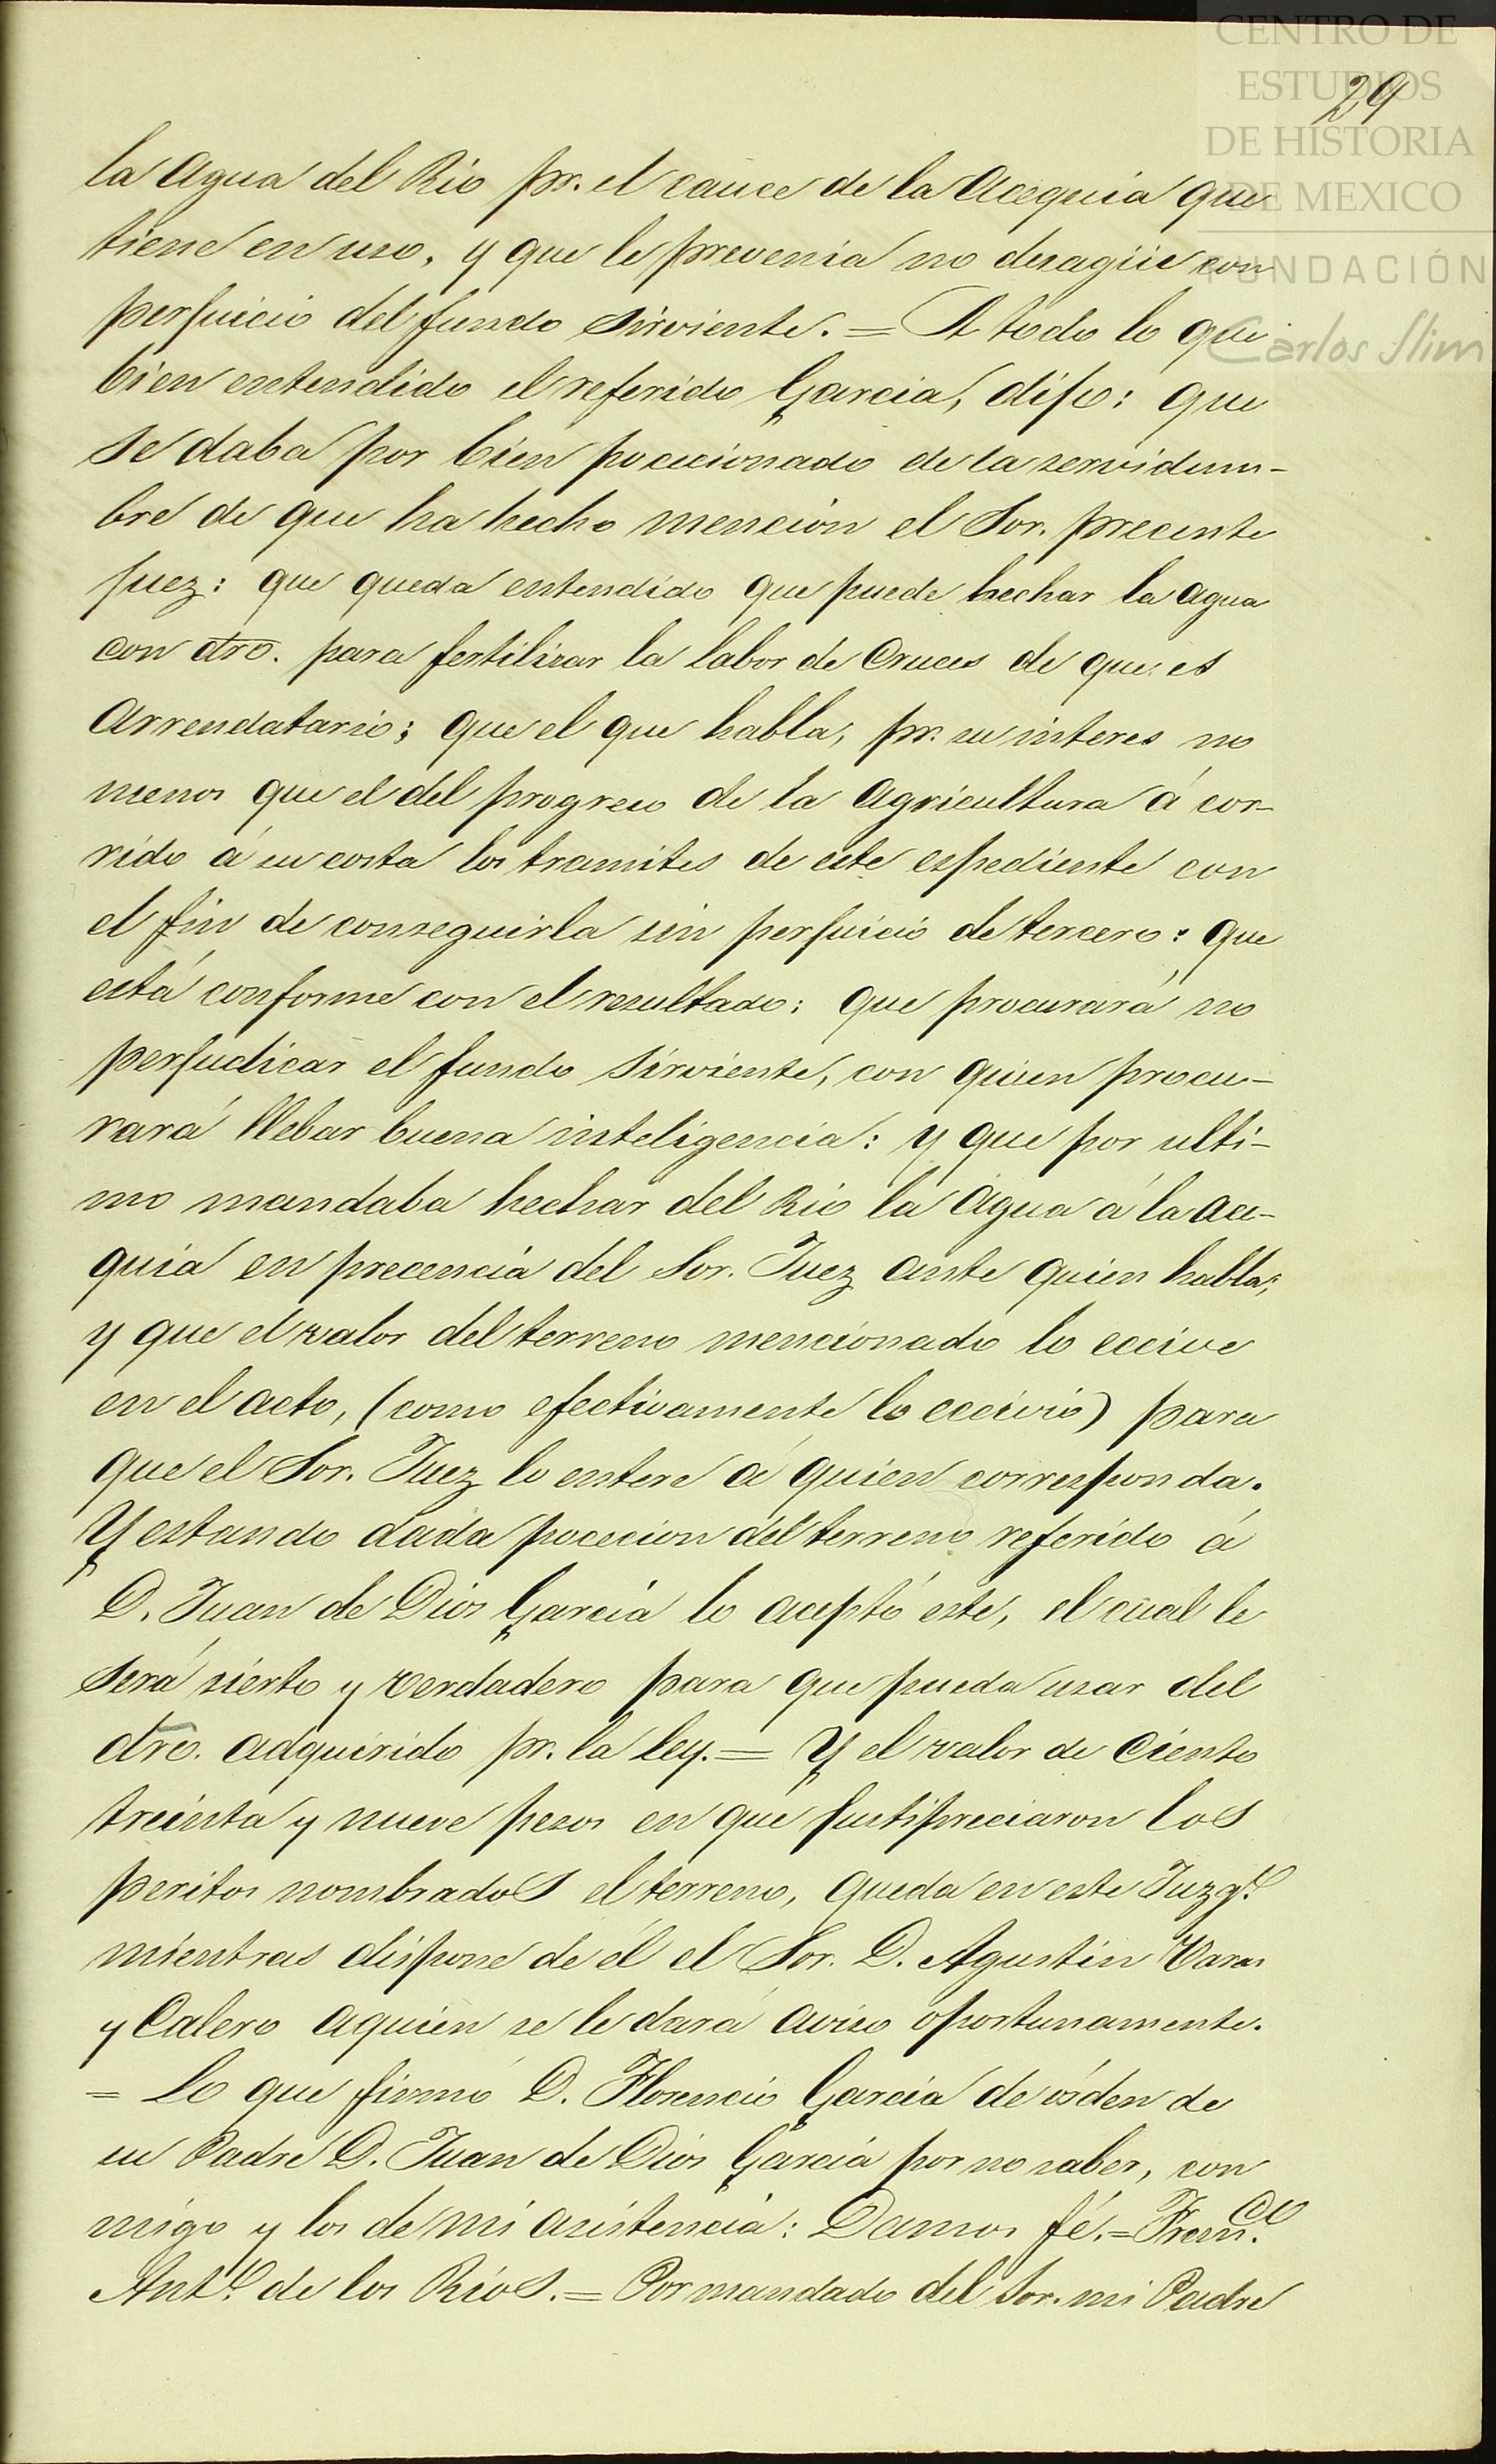 CENTRO DE
ESTUDIOS
DE HISTORIA
DE MEXICO
FUNDACIÓN
Carlos Slim
29
la Agua del Rio pr. el cauce de la Acequia que
tiene en uso, y que le prevenia no desagüe con
perjuicio del fundo sirviente. = A todo lo que
bien entendido el referido Garcia, dijo: que
se daba por bien pocecionado de la servidum-
bre de que ha hecho mención el Sor. precente
juez: que queda entendido que puede hechar la agua
con dro. para fertilizar la labor de Cruces de que es
Arrendatario; que el que habla, pr. su interes no
menos que el del progreso de la Agricultura á cor-
rido á su costa los tramites de este espediente con
el fin de conseguirla sin perjuicio de tercero: que
está conforme con el resultado: que procurará no
perjudicar el fundo sirviente, con quien procu-
rará llebar buena inteligencia: y que por ulti-
mo mandaba hechar del Rio la Agua á la ace-
quia en precencia del Sor. Juez ante quien habla;
y que el valor del terreno mencionado lo eccive
en el acto, (como efectivamente lo eccivió) para
que el Sor. Juez lo entere á quien corresponda.
Y estando dada pocecion del terreno referido á
D. Juan de Dios Garcia lo aceptó este, el cual le
será sierto y verdadero para que pueda usar del
dro. adquirido pr. la ley. = Y el valor de Ciento
treinta y nueve pesos en que justipreciaron los
peritos nombrados el terreno, queda en este Juzgo.
mientras dispone de él el Sor. D. Agustin Varas
y Calero aquien se le dará aviso oportunamente.
= Lo que firmó D. Florencio Garcia de órden de
su Padre D. Juan de Dios Garcia por no saber, con
migo y los de mi asistencia: Damos fé. = Franco.
Anto. de los Rios. = Por mandado del Sor. mi Padre